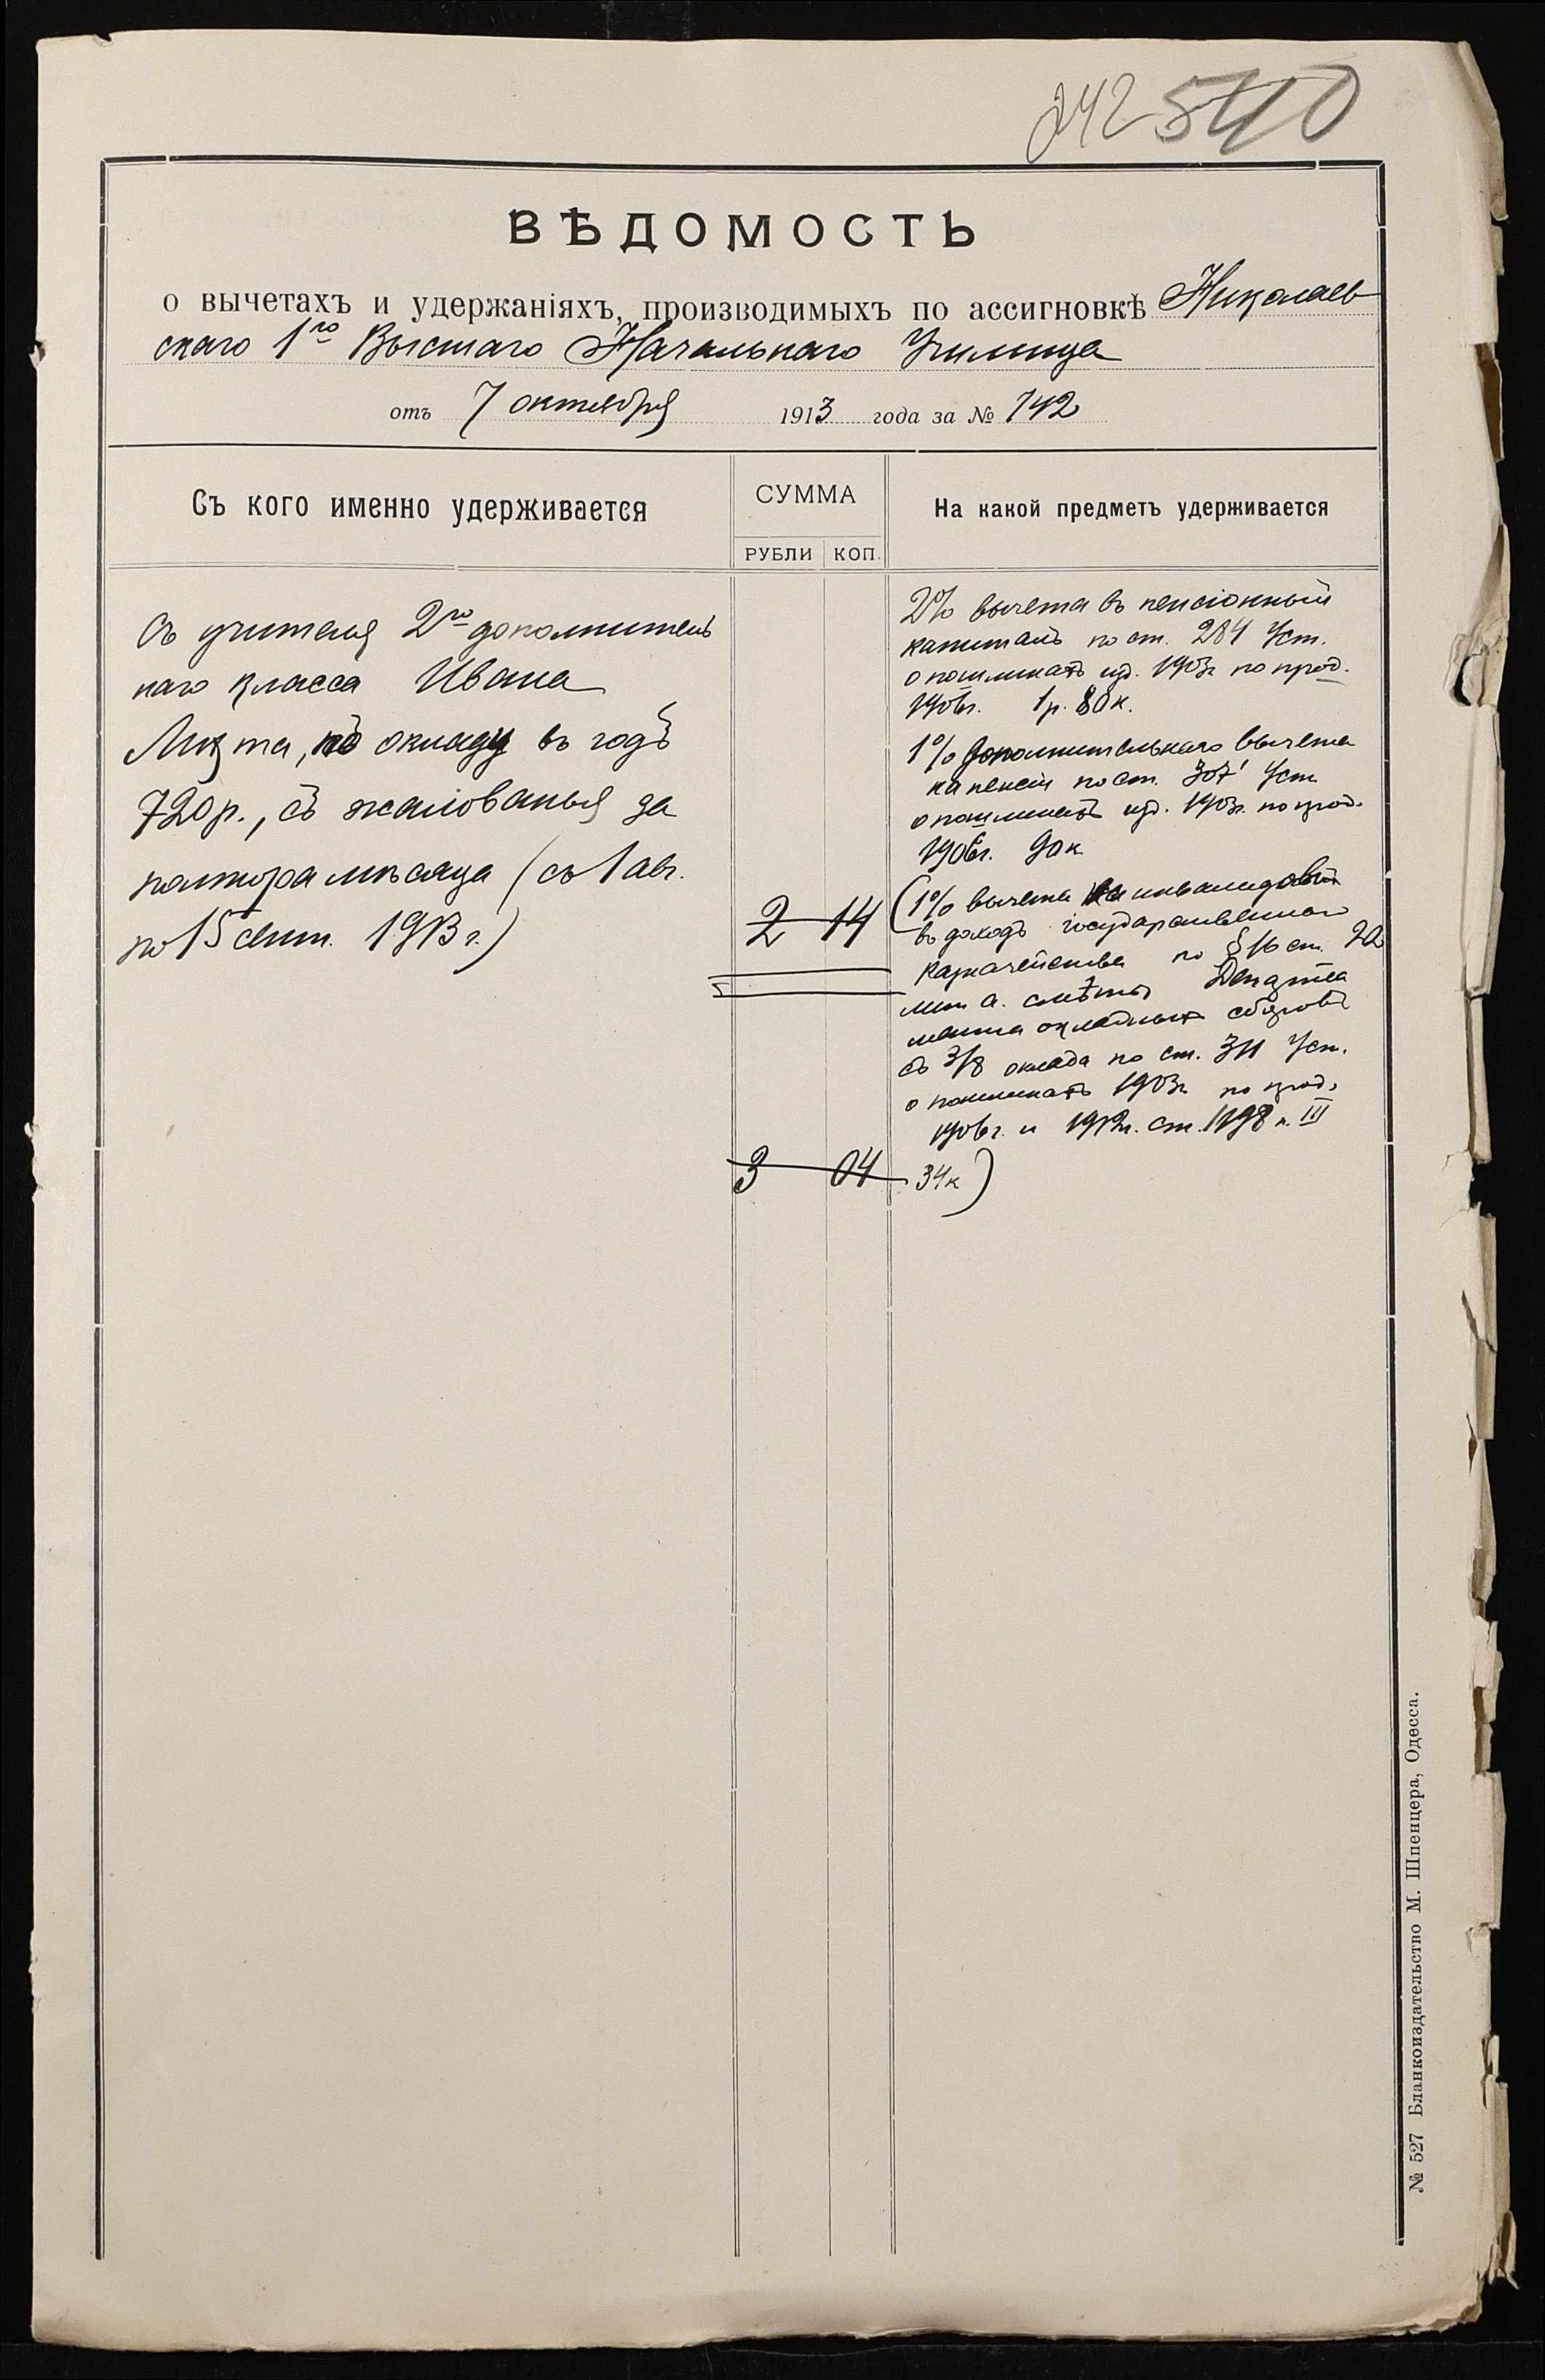 242 540
ВѢДОМОСТЬ
о вычетахъ и удержаніяхъ, производимыхъ по ассигновкѣ Николаев-
скаго 1го Высшаго Начальнаго Училища
отъ 7 октября 1913 года за № 742
Съ кого именно удерживается
СУММА
РУБЛИ КОП.
На какой предметъ удерживается
Съ учителя 2го дополнитель
наго класса Ивана
по окладу въ годъ
720 р., съ жалованья за
полтора мѣсяца (съ 1 авг.
по 15 сент. 1913 г.)
2 14
3 04
2% вычета въ пенсіонный
капиталъ по ст. 284 Уст.
о пошлинахъ изд. 1903г. по прод.
1906г. 1 р. 80 к.
1% дополнительнаго вычета
на пенсіи по ст. 307¹ Уст.
о пошлинахъ изд. 1903г. по прод.
1906г. 90 к
(1% вычета на инвалидовъ
въ доходъ государственнаго
казначейства по § 16 ст. 2а
лит а. смѣты Департа
мента окладныхъ сборовъ
съ 3/8 оклада по ст. 311 Уст.
о пошлинахъ 1903г. по прод.
1906г. и 1912г. ст. 1198 п. III
34к)
№ 527 Бланкоиздательство М. Шпенцера, Одесса.